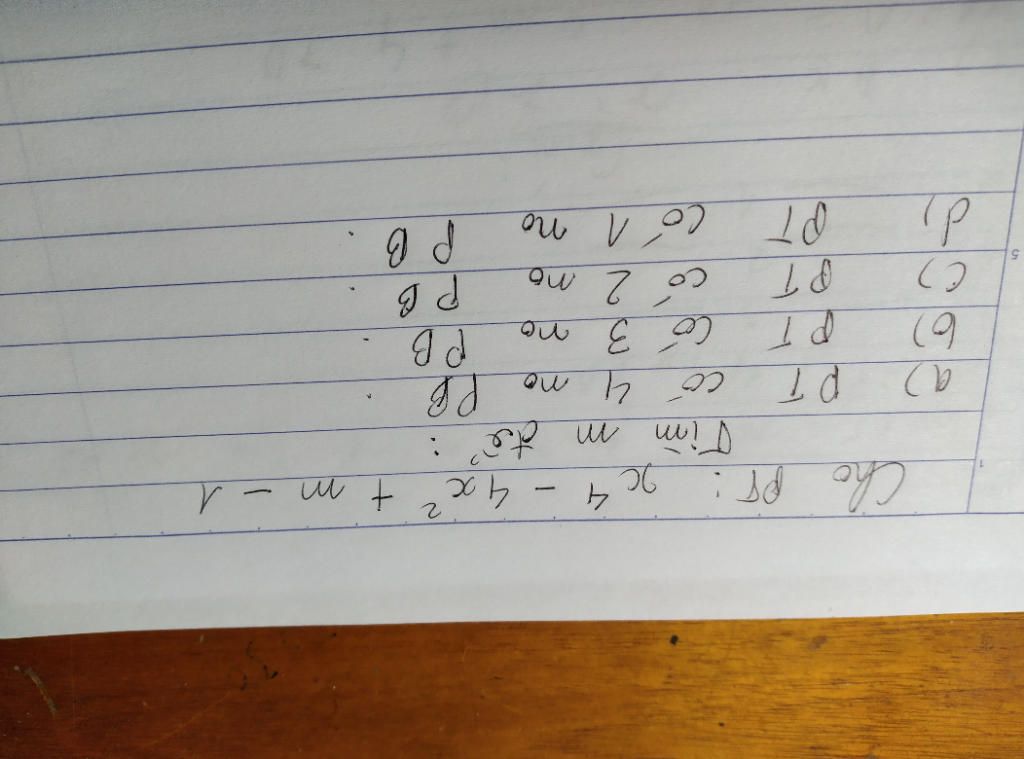 Cho PT: x⁴ - 4x² + m - 1
Tìm m để :
a) PT có 4 no PB .
b) PT có 3 no PB .
c) PT có 2 no PB .
d, PT có 1 no PB .